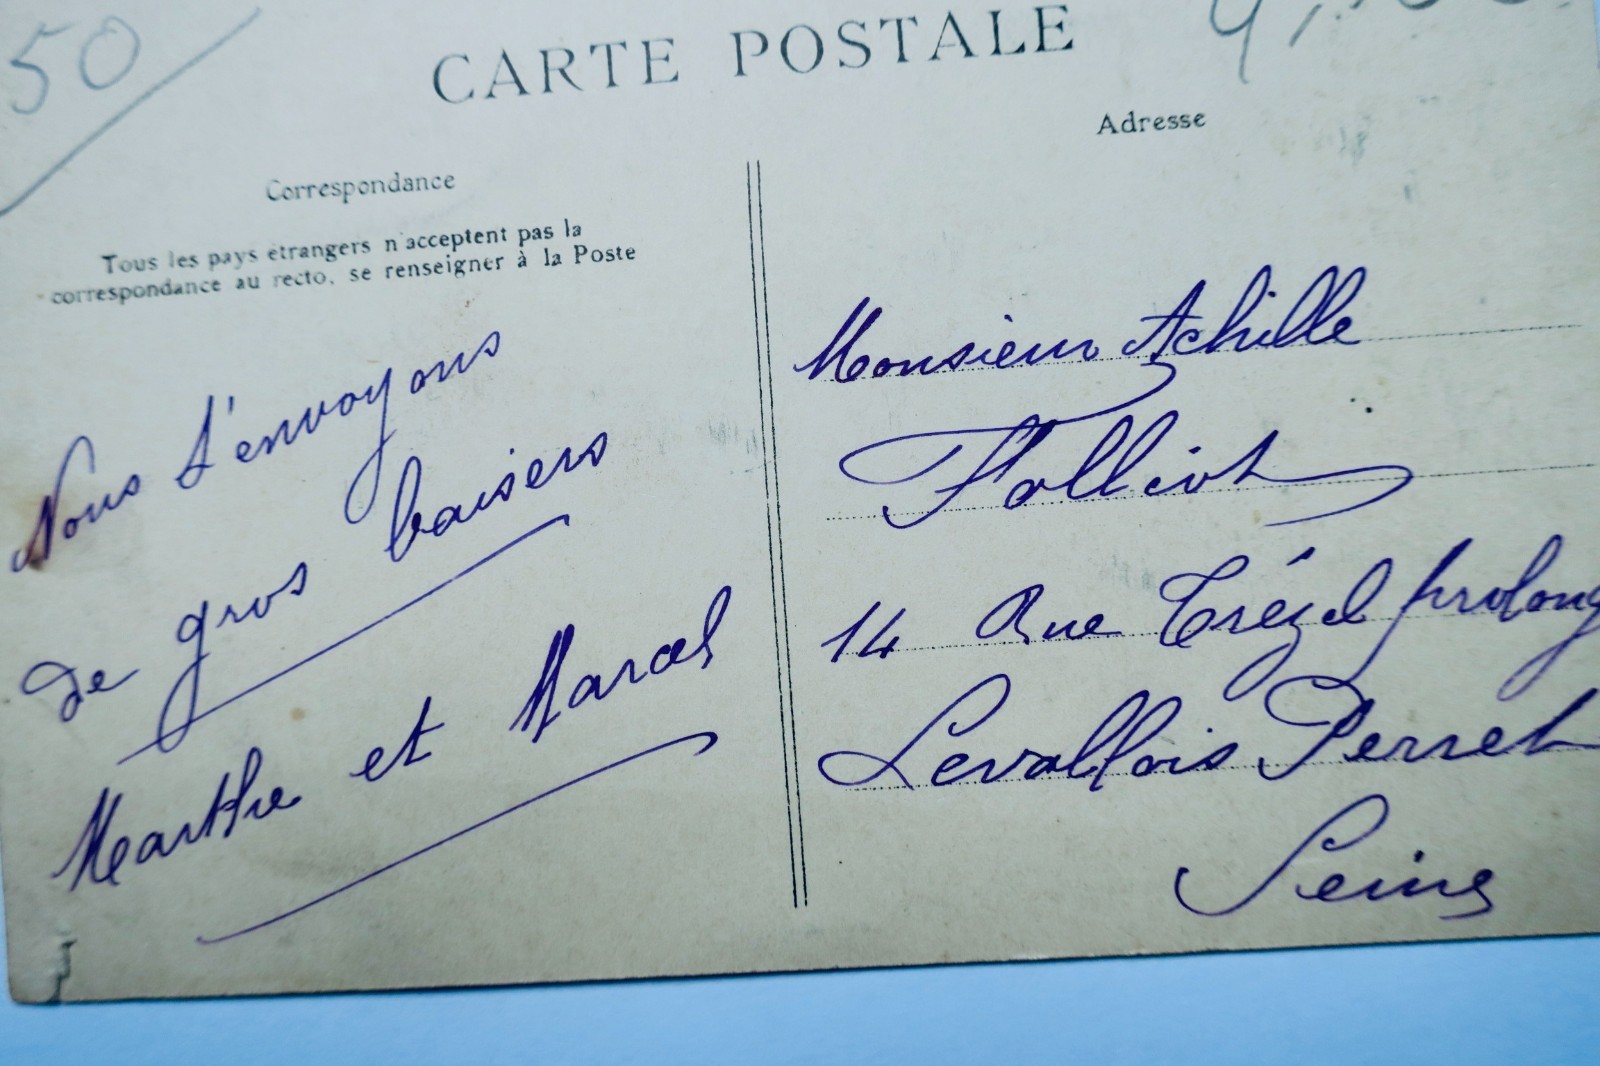 50
CARTE POSTALE
Correspondance
Tous les pays étrangers n'acceptent pas la
correspondance au recto, se renseigner à la Poste
Nous t'envoyons
de gros baisers
Marthe et Marcel
Adresse
Monsieur Achille
Folliot
14 Rue Trézel prolong
Levallois Perret
Seine